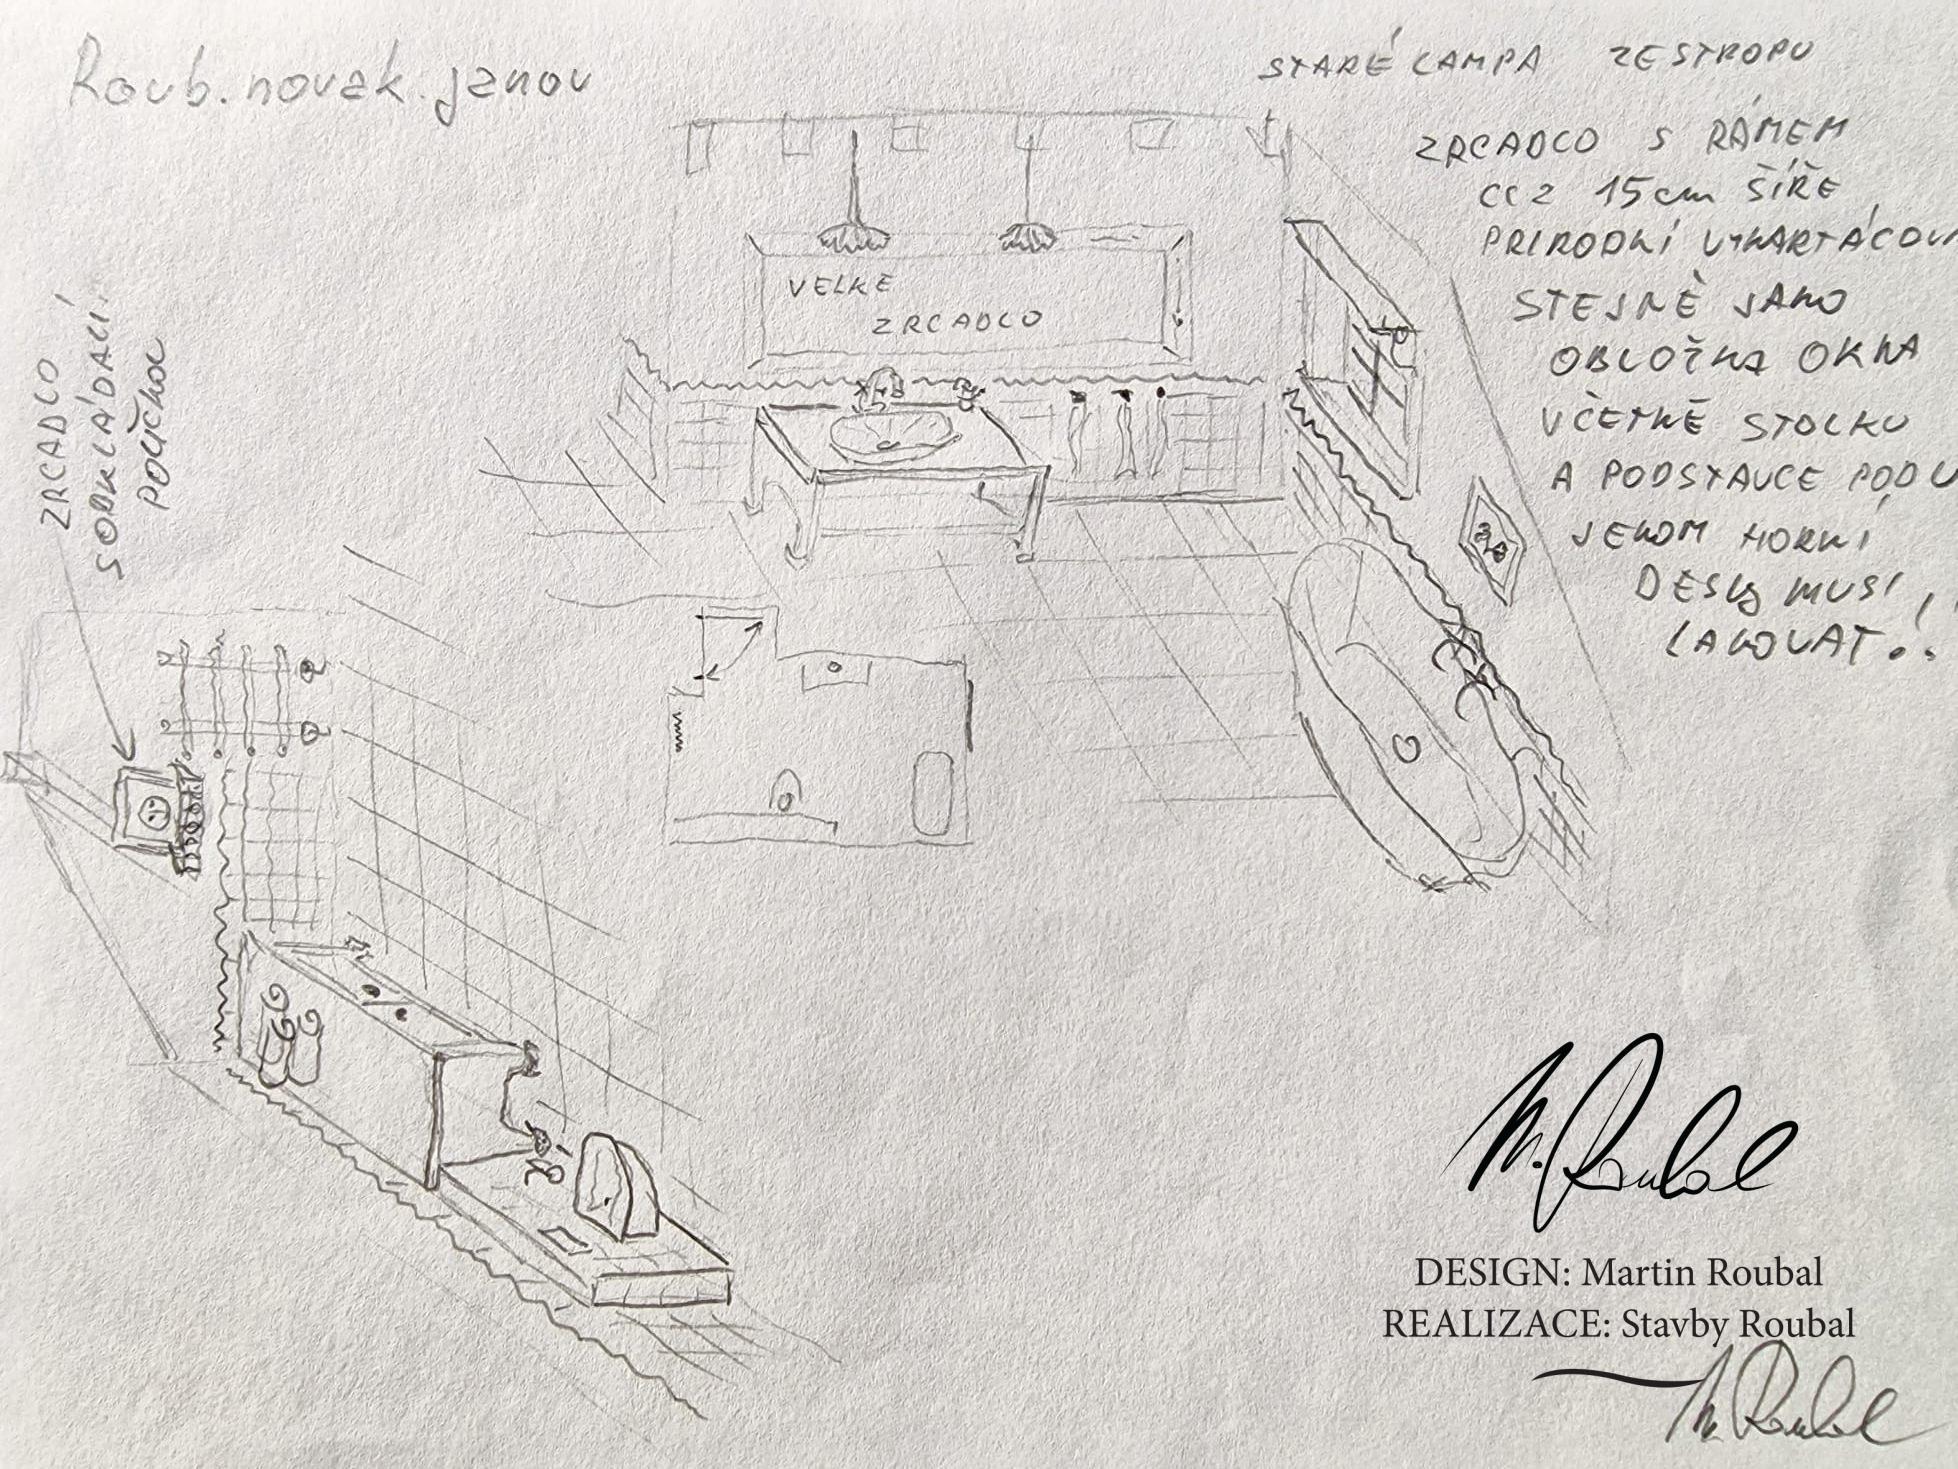 Roub. novak. janov
STARÉ LAMPA ZE STROPU
ZRCADLO S RÁMEM
CCA 15cm ŠÍŘE
PŘIRODNÍ VYKARTÁČOVA
STEJNĚ JAKO
OBLOŽKA OKNA
VČETNĚ STOLKU
A PODSTAVCE POD U
JENOM HORNÍ
DESKY MUSÍ
LAKOVAT!
VELKÉ
ZRCADLO
ZRCADLO
S ODKLÁDACÍ
POLIČKOU
M. Roubal
DESIGN: Martin Roubal
REALIZACE: Stavby Roubal
M. Roubal